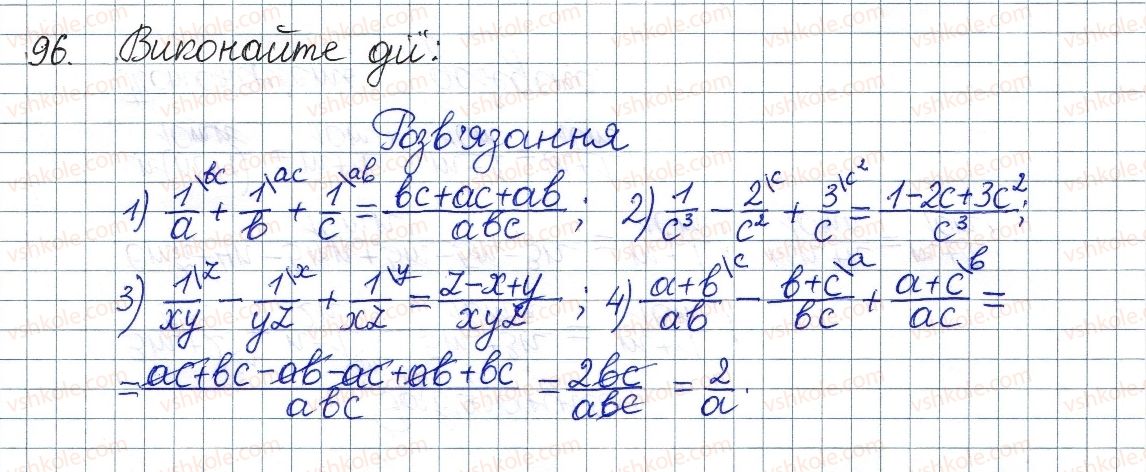 96. Виконайте дії:
Розв'язання
1) 1/a \bc + 1/b \ac + 1/c \ab = (bc+ac+ab)/abc ; 2) 1/c³ − 2/c² \c + 3/c \c² = (1−2c+3c²)/c³ ;
3) 1/xy \z − 1/yz \x + 1/xz \y = (z−x+y)/xyz ; 4) (a+b)/ab \c − (b+c)/bc \a + (a+c)/ac \b =
= (ac+bc−ab−ac+ab+bc)/abc = 2bc/abc = 2/a .